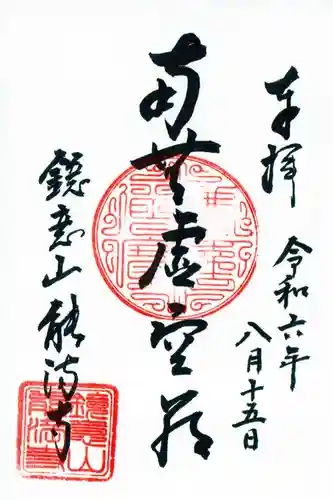 奉拝
令和六年
八月十五日
南無虚空蔵
鏡意山能満寺